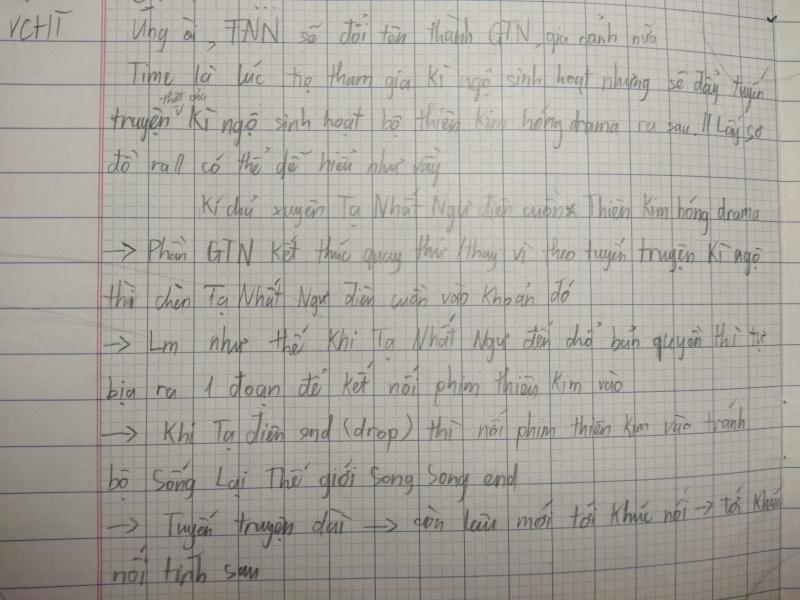 VCHT Ứng ài, TNN sẽ đổi tên thành GTN, gia cảnh nữa
Time là lúc họ tham gia Kì ngộ sinh hoạt nhưng sẽ đẩy tuyến
thật của
truyện Kì ngộ sinh hoạt bộ thiên kim hóng drama ra sau // Lấy sơ
đồ ra // có thể dễ hiểu như vầy
Kí chủ xuyên Tạ Nhất Ngư điên cuồn * Thiên Kim hóng drama
→ Phần GTN kết thúc quay thử / thay vì theo tuyến truyện Kì ngộ
thì chèn Tạ Nhất Ngư điên cuồn vào khoản đó
→ Lm như thế khi Tạ Nhất Ngư đến chỗ bản quyền thì tự
bịa ra 1 đoạn để kết nối phim thiên kim vào
→ Khi Tạ điên end (drop) thì nối phim thiên kim vào tránh
bộ Sống Lại Thế giới Song Song end
→ Tuyến truyện dài → còn lâu mới tới khúc nối → tới khúc
nối tính sau